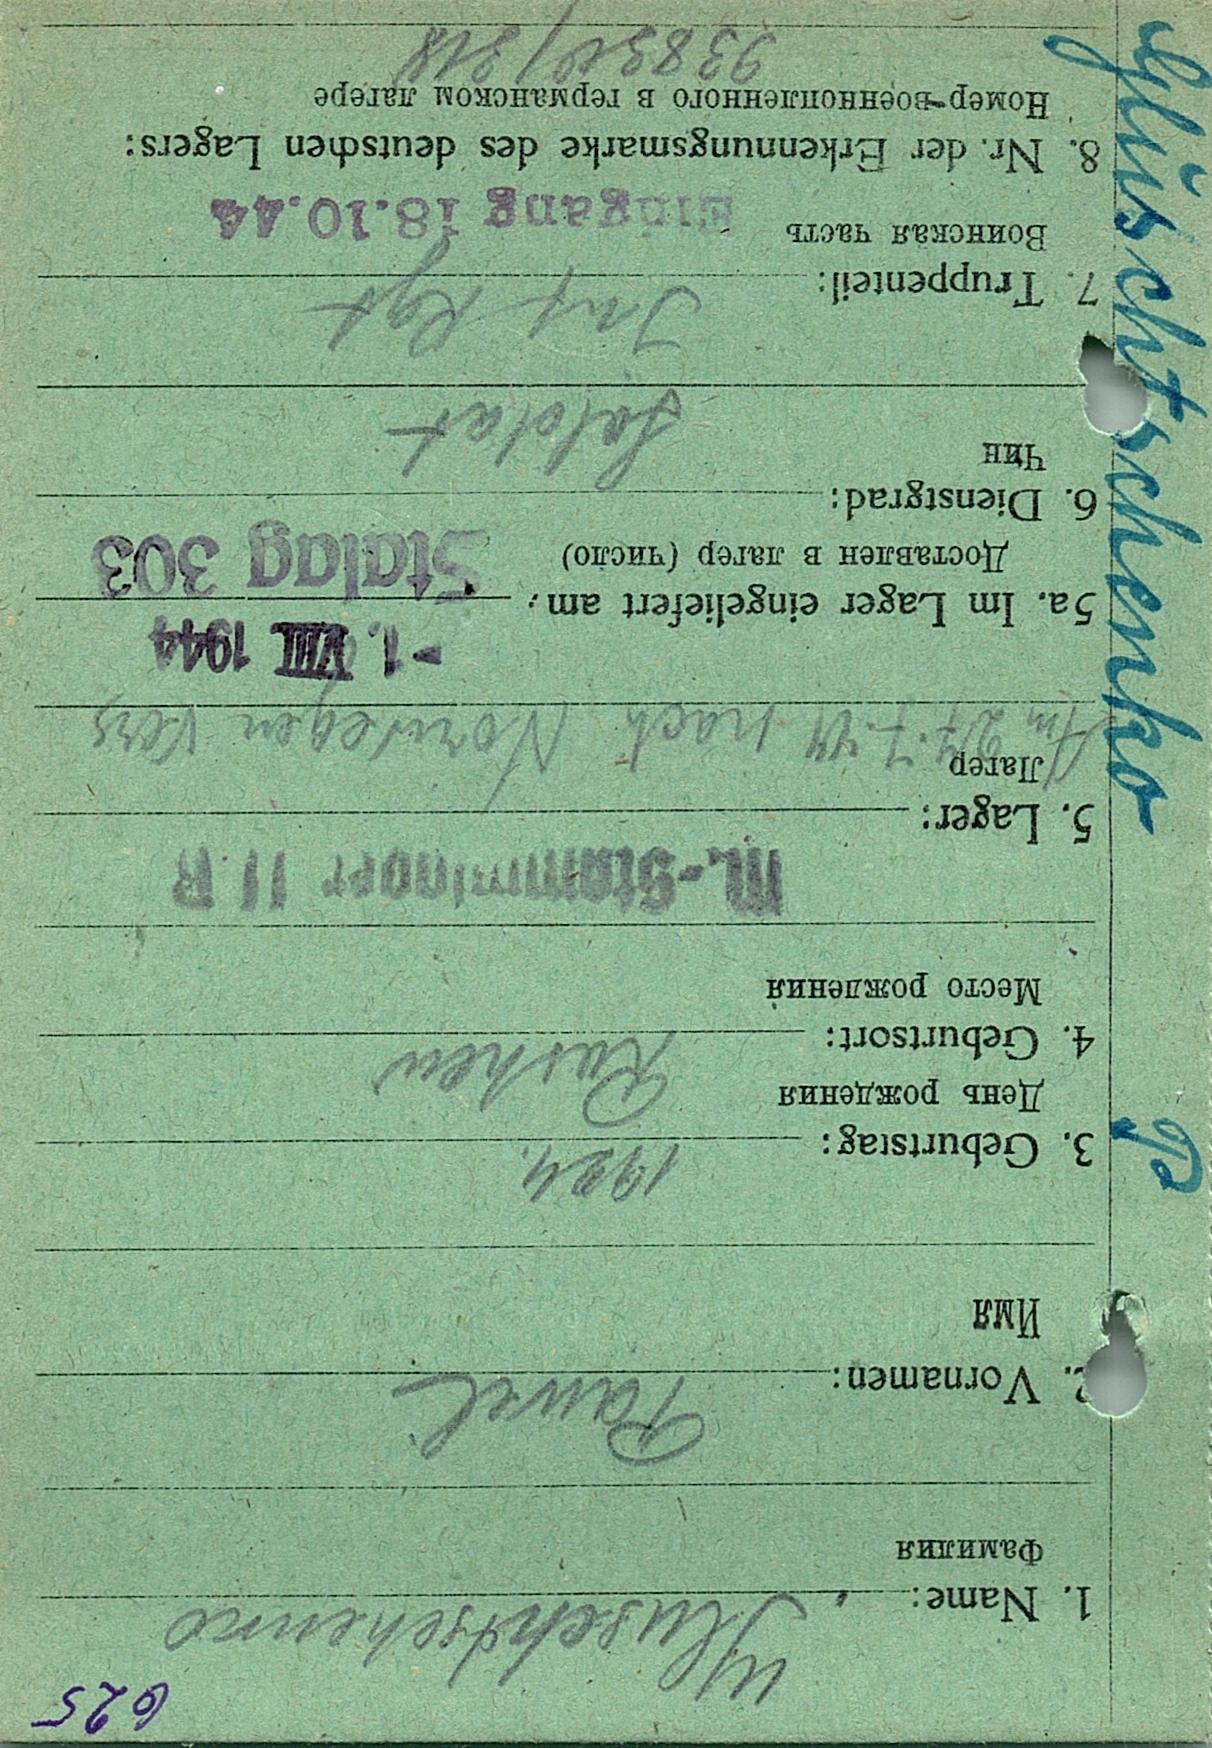 625
1. Name:
Фамилия
2. Vornamen: Pawel
Имя
3. Geburtstag: 1924.
День рождения
4. Geburtsort:
Место рождения
M.-Stammlager II B
5. Lager:
Лагер
Am 27.7.44 nach Norwegen vers
-1. VIII 1944
5a. Im Lager eingeliefert am: Stalag 303
Доставлен в лагер (число)
6. Dienstgrad: Soldat
Чин
7. Truppenteil: Inf Rgt
Воинская часть
Eingang 18.10.44
8. Nr. der Erkennungsmarke des deutschen Lagers:
Номер военнопленного в германском лагере
P